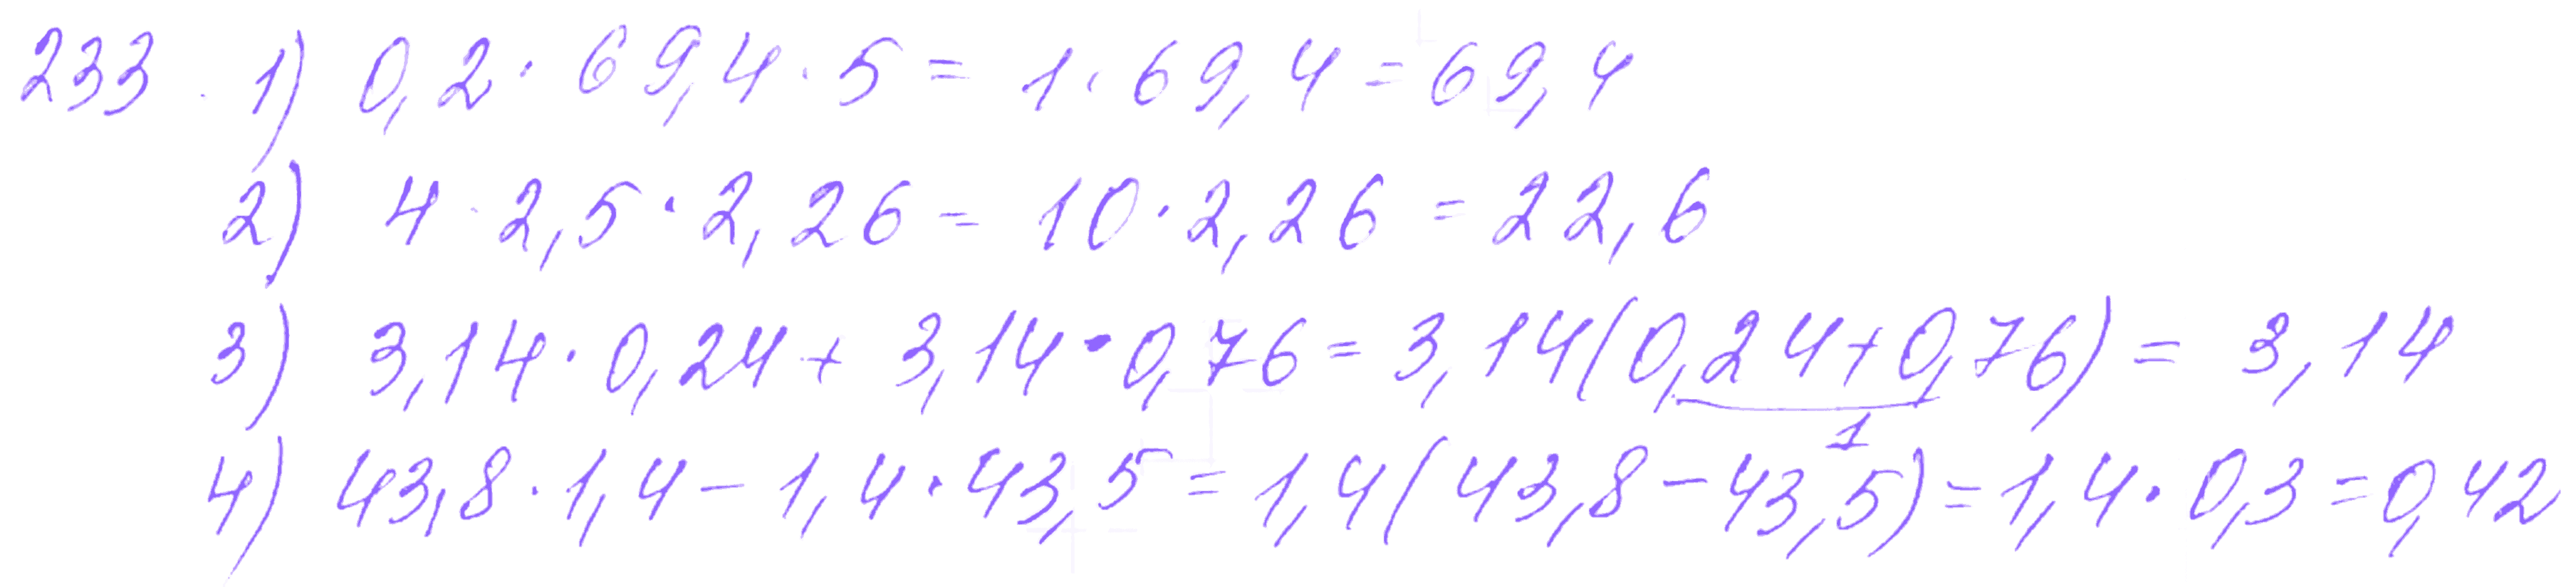 233. 1) 0,2 · 69,4 · 5 = 1 · 69,4 = 69,4
2) 4 · 2,5 · 2,26 = 10 · 2,26 = 22,6
3) 3,14 · 0,24 + 3,14 · 0,76 = 3,14(0,24+0,76) = 3,14
1
4) 43,8 · 1,4 – 1,4 · 43,5 = 1,4(43,8–43,5) = 1,4 · 0,3 = 0,42